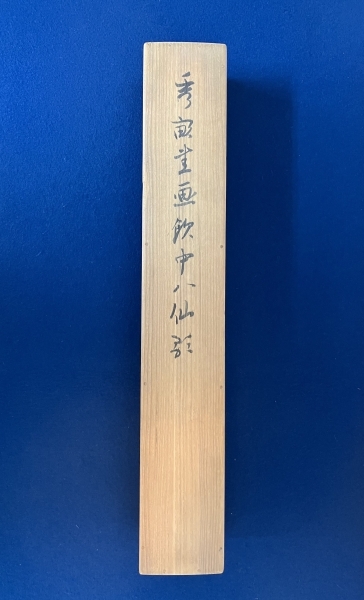 秀畝堂画飲中八仙歌